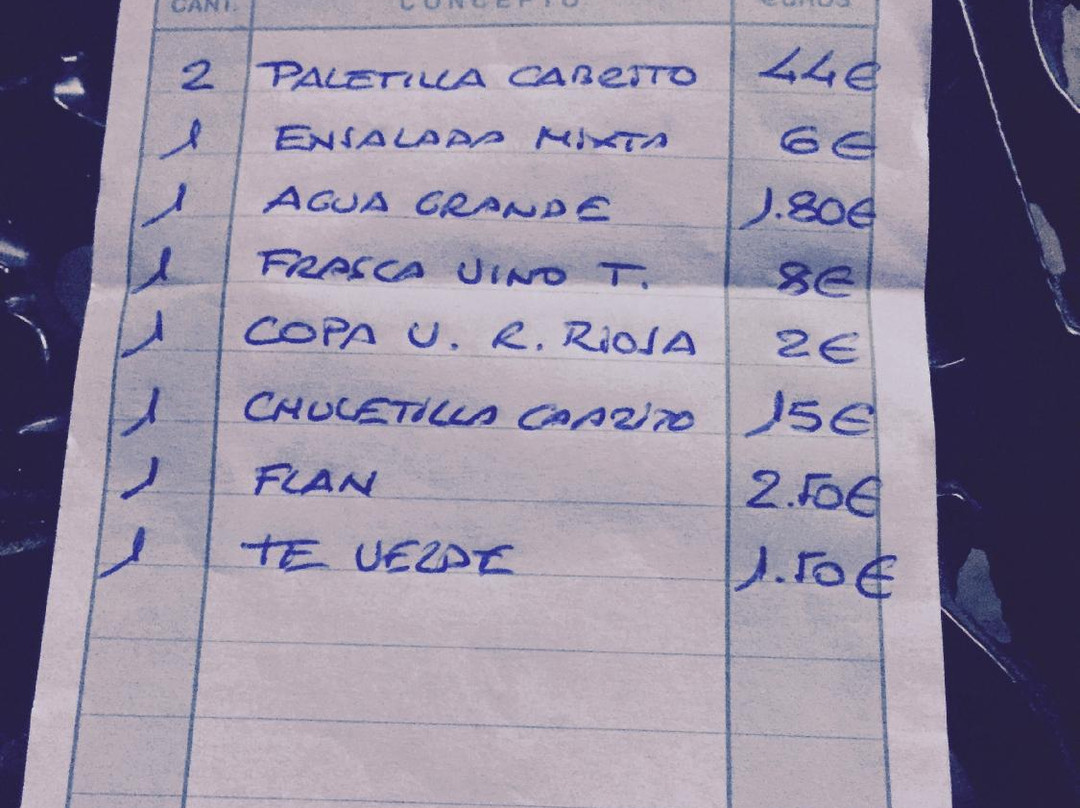 CANT. CONCEPTO EUROS
2 PALETILLA CABRITO 44€
1 ENSALADA MIXTA 6€
1 AGUA GRANDE 1.80€
1 FRASCA VINO T. 8€
1 COPA V. R. RIOJA 2€
1 CHULETILLA CABRITO 15€
1 FLAN 2.50€
1 TE VERDE 1.50€